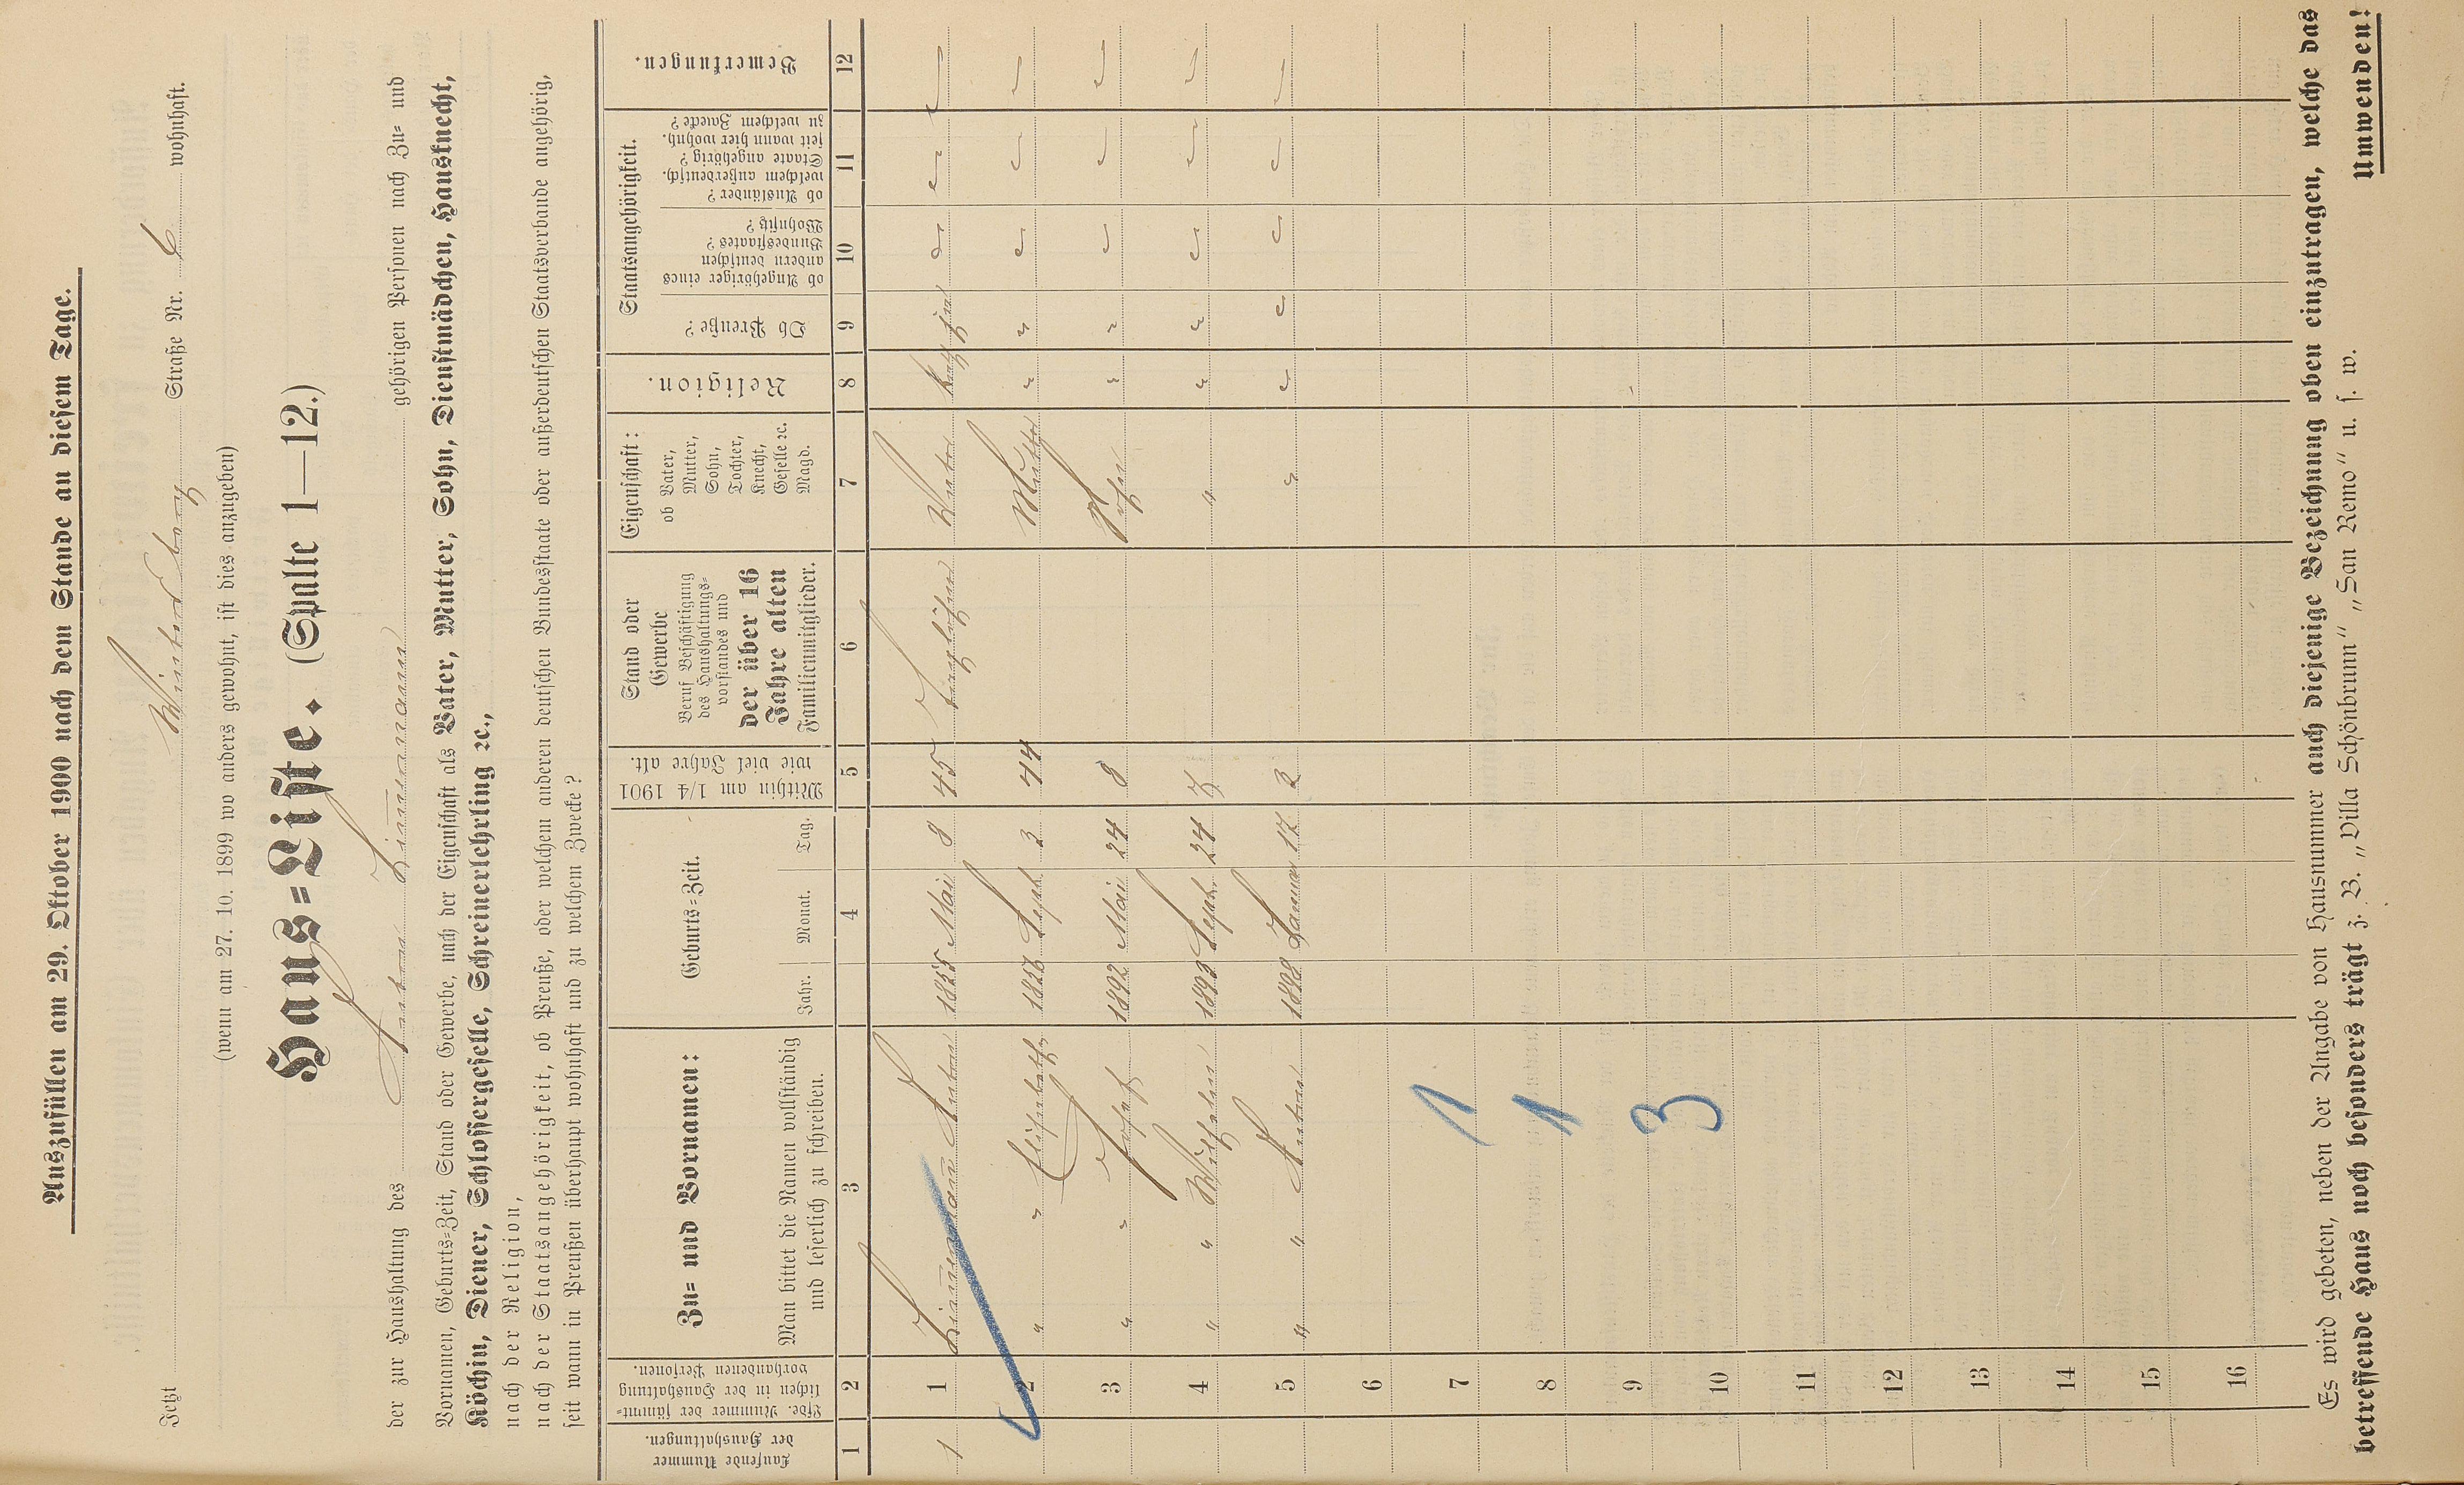 Auszufüllen am 29. Oktober 1900 nach dem Stande an diesem Tage.
Jetzt Winterberg Straße Nr. 6 wohnhaft.
(wenn am 27. 10. 1899 wo anders gewohnt, ist dies anzugeben)
Haus=Liste. (Spalte 1—12.)
der zur Haushaltung des Anton Zimmermann gehörigen Personen nach Zu= und
Vornamen, Geburts=Zeit, Stand oder Gewerbe, nach der Eigenschaft als Vater, Mutter, Sohn, Dienstmädchen, Hausknecht,
Köchin, Diener, Schlossergeselle, Schreinerlehrling ꝛc.,
nach der Religion,
nach der Staatsangehörigkeit, ob Preuße, oder welchem anderen deutschen Bundesstaate oder außerdeutschen Staatsverbande angehörig,
seit wann in Preußen überhaupt wohnhaft und zu welchem Zwecke?
Laufende Nummer
der Haushaltungen.
Lfde. Nummer der sämmt=
lichen in der Haushaltung
vorhandenen Personen.
Zu= und Vornamen:
Man bittet die Namen vollständig
und leserlich zu schreiben.
Geburts=Zeit.
Jahr. Monat. Tag.
Mithin am 1/4 1901
wie viel Jahre alt.
Stand oder
Gewerbe
Beruf Beschäftigung
des Haushaltungs=
vorstandes und
der über 16
Jahre alten
Familienmitglieder.
Eigenschaft:
ob Vater,
Mutter,
Sohn,
Tochter,
Knecht,
Geselle ꝛc.
Magd.
Religion.
Staatsangehörigkeit.
Ob Preuße?
ob Angehöriger eines
andern deutschen
Bundesstaates?
Wohnsitz?
ob Ausländer?
welchem außerdeutsch.
Staate angehörig?
seit wann hier wohnh.
zu welchem Zwecke?
Bemerkungen.
1 2 3 4 5 6 7 8 9 10 11 12
1 1 Zimmermann Anton 1855 Mai 8 45 Taglöhner Vater kath ja
2 " " Elisabeth 1856 Sept. 3 44 Mutter " "
3 " " Josef 1892 Mai 24 8 Sohn " "
4 " " Wilhelm 1893 Sept. 24 7 " " "
5 " " Anton 1898 Januar 17 2 "
6
7 1
8 1
9 3
10
11
12
13
14
15
16
Es wird gebeten, neben der Angabe von Hausnummer auch diejenige Bezeichnung oben einzutragen, welche das
betreffende Haus noch besonders trägt z. B. „Villa Schönbrunn" „San Remo" u. s. w.
Umwenden!